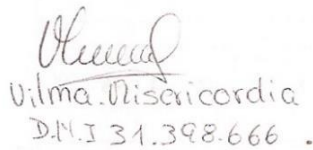 Vilma. Misericordia
D.N.I 31.398.666 .